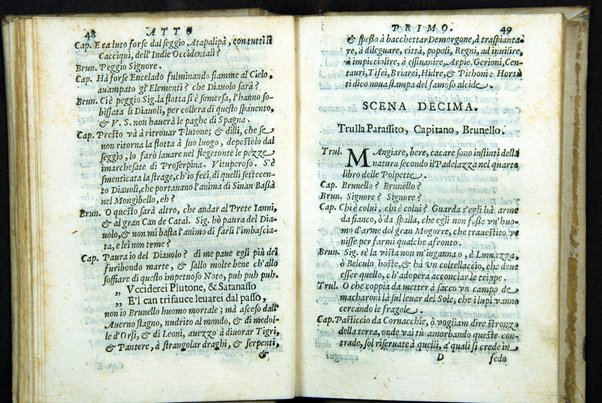 48 ATTO
Cap. E ca luto forse dal seggio Atapalipa, con tutti li
Cacciqui, dell'Indie Occidentali?
Brun. Peggio Signore.
Cap. Hà forse Encelado fulminando fiamme al Cielo,
auampato gl'Elementi? che Diauolo sarà?
Brun. Ciè peggio Sig. la flotta si è somersa, l'hanno so-
bissata li Diauoli, per collera di questo spauento,
& V. S. non hauerà le paghe di Spagna.
Cap. Presto và à ritrouar Plutone; & dilli, che se
non ritorna la flotta à suo luogo, depostolo dal
seggio, lo farò lauare nel flegetonte le pezze
imarchesate di Proserpina. Vituperoso. S'è
smenticata la strage, ch'io feci, di quelli settecen-
to Diauoli, che portauano l'anima di Sinan Bassà
nel Mongibello, eh?
Brun. O questo sarà altro, che andar al Prete Ianni,
& al gran Can de Catai. Sig. hò paura del Dia-
uolo, & non mi basta l'animo di farli l'imbascia-
ta, e lei non teme?
Cap. Paura io del Diauolo? di me paue egli più del
furibondo marte, & sallo molte bene ch'allo
soffiare di questo impetuoso Noto, puh puh puh.
„ Vcciderei Plutone, & Satanasso
„ E'l can trifauce leuarei dal passo,
non io Brunello huomo mortale; mà asceso dall'
Auerno stagno, nudrito al mondo, & di medol-
le d'Orsi, & di Leoni, auezzo à diuorar Tigri,
& Pantere, à strangolar draghi, & serpenti,
&
PRIMO. 49
& spesso à bacchettar Demorgone, à traspianta-
re, à dileguare, città, popoli, Regni, ad inuilire,
à impicciolire, à essinanire, Arpie, Gerioni, Cen-
tauri, Tifei, Briarei, Hidre, & Pithoni: Horsù
ti dico noua stampa del famoso alcide.
SCENA DECIMA.
Trulla Parassito, Capitano, Brunello.
Trul. MAngiare, bere, cacare sono instinti della
natura secondo il Padelazza nel quarto
libro delle Polpette.
Cap. Brunello? Brunello?
Brun. Signore? Signore?
Cap. Chi è colui, chi è colui? Guarda s'egli hà arme
da fianco, ò da spalla, che egli non fusse vn'huo-
mo d'arme del gran Mogorre, che trauestito ve-
nisse per farmi qualche afronto.
Brun. Sig. sè la vista non m'inganna, ò, Lumazza,
ò Belculo hoste, & hà vn coltellaccio, che deue
esser quello, ch'adopera accociando le trippe.
Trul. O che coppia da metter à sacco vn campo de
macharoni là sul leuar del Sole, che i lupi vanno
cercando le fragole.
Cap. Pasticcio da Cornacchie, ò vogliam dire stronzo
della terra, onde vai tù amorbando queste con-
trado, sol riseruate à quelli, a' quali si crede in
D fedo